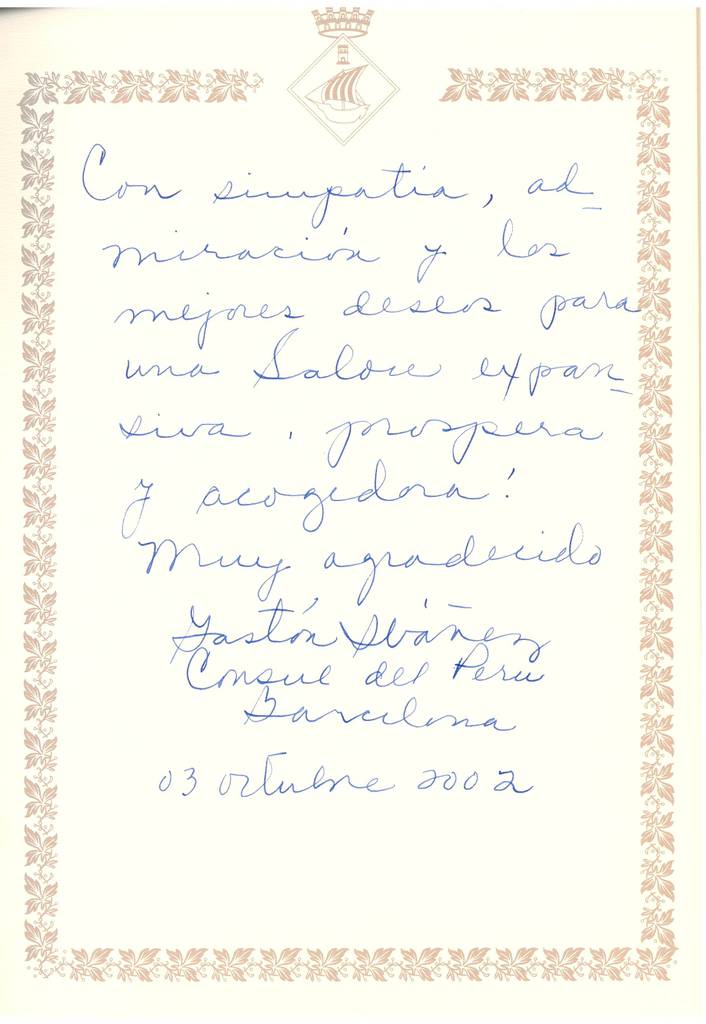 Con simpatia, ad-
miración y los
mejores deseos para
una Salou expan-
siva, prospera
y acogedora!
Muy agradecido
Gastón Ibáñez
Consul del Peru
Barcelona
03 octubre 2002